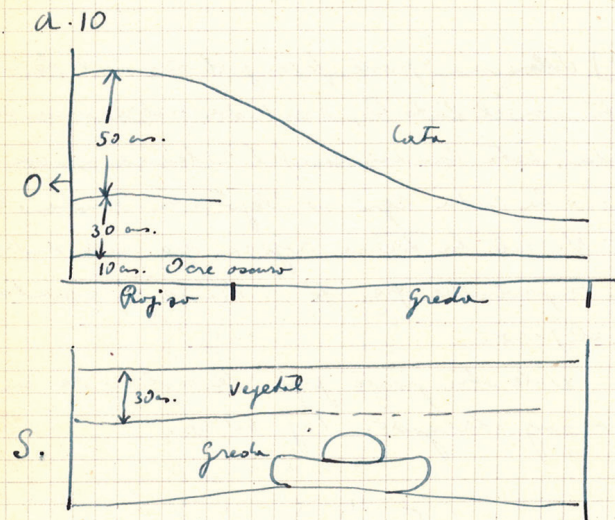 a.10
50 cms.
Cata
O
30 cms.
10 cms. Ocre oscuro
Rojizo
Greda
30 cms.
Vegetal
S.
Greda